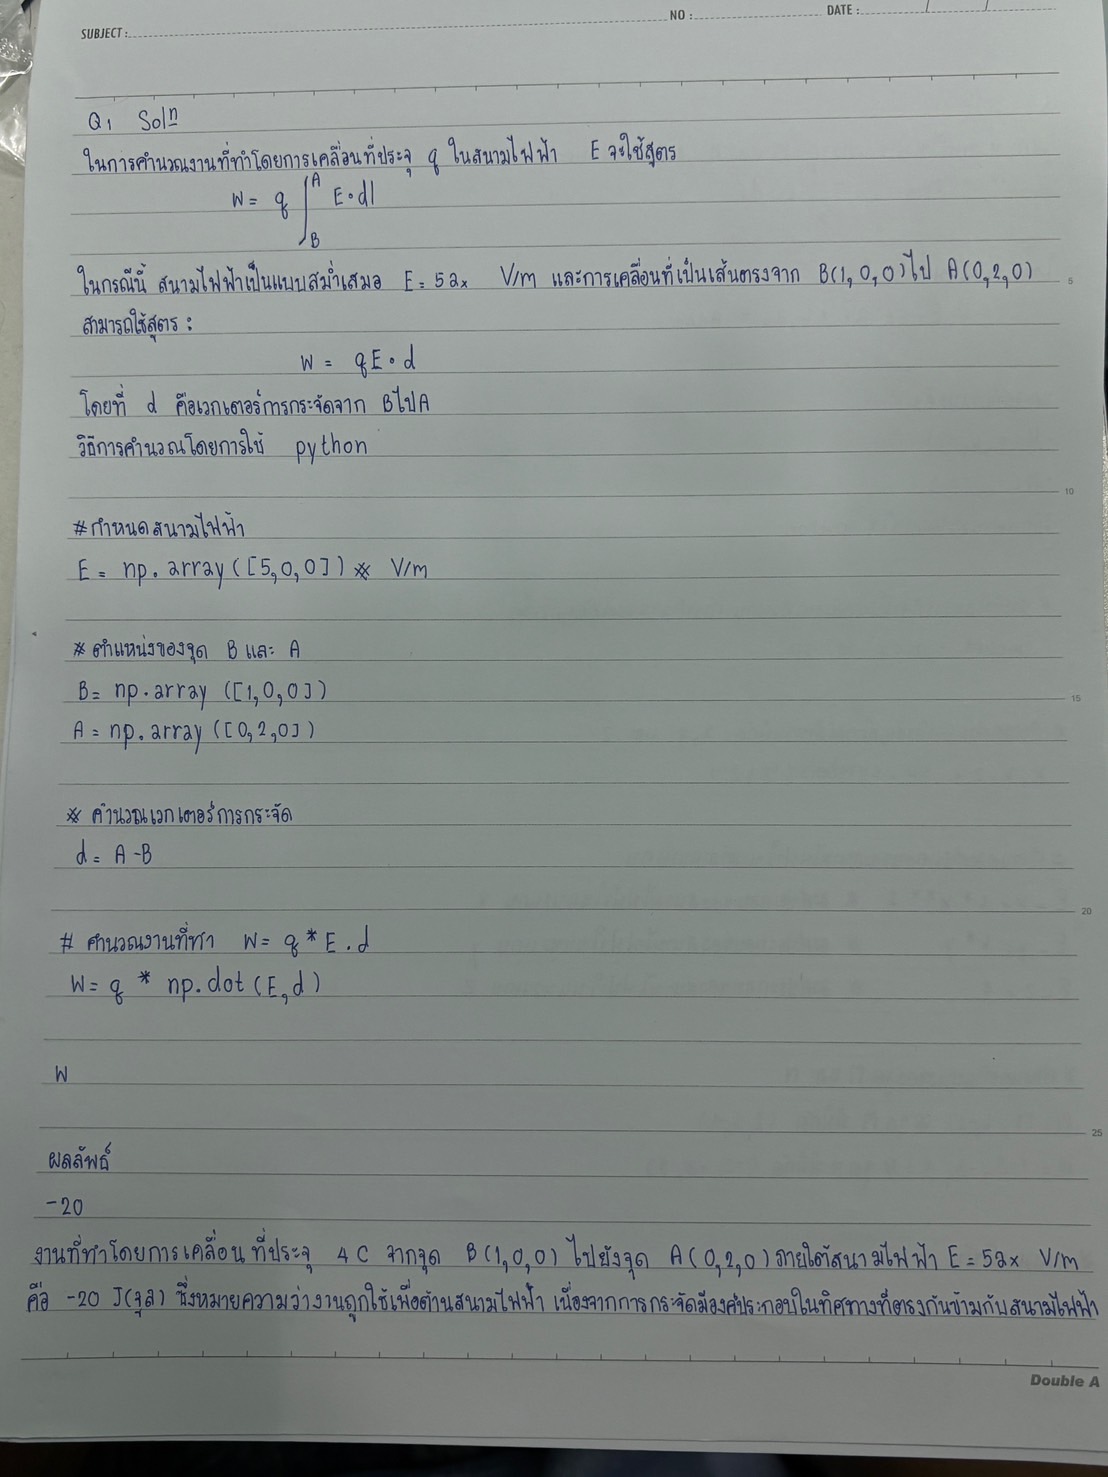 SUBJECT :
NO :
DATE : / /
Q1 Solⁿ
ในการคำนวณงานที่ทำโดยการเคลื่อนที่ประจุ q ในสนามไฟฟ้า E จะใช้สูตร
W = q ∫ᴬ E • dl
B
ในกรณีนี้ สนามไฟฟ้าเป็นแบบสม่ำเสมอ E = 5ax V/m และการเคลื่อนที่เป็นเส้นตรงจาก B(1,0,0) ไป A(0,2,0)
5
สามารถใช้สูตร :
W = qE • d
โดยที่ d คือเวกเตอร์การกระจัดจาก B ไป A
วิธีการคำนวณโดยการใช้ python
10
#กำหนดสนามไฟฟ้า
E = np. array ([5,0,0]) * V/m
* ตำแหน่งของจุด B และ A
B = np. array ([1,0,0])
15
A = np. array ([0,2,0])
* คำนวณเวกเตอร์การกระจัด
d = A - B
20
# คำนวณงานที่ทำ W = q * E . d
W = q * np. dot (E, d)
W
25
ผลลัพธ์
-20
งานที่ทำโดยการเคลื่อนที่ประจุ 4 C จากจุด B(1,0,0) ไปยังจุด A(0,2,0) ภายใต้สนามไฟฟ้า E = 5ax V/m
คือ -20 J(จูล) ซึ่งหมายความว่างานถูกใช้เพื่อต้านสนามไฟฟ้า เนื่องจากการกระจัดมีองค์ประกอบในทิศทางที่ตรงกันข้ามกับสนามไฟฟ้า
Double A